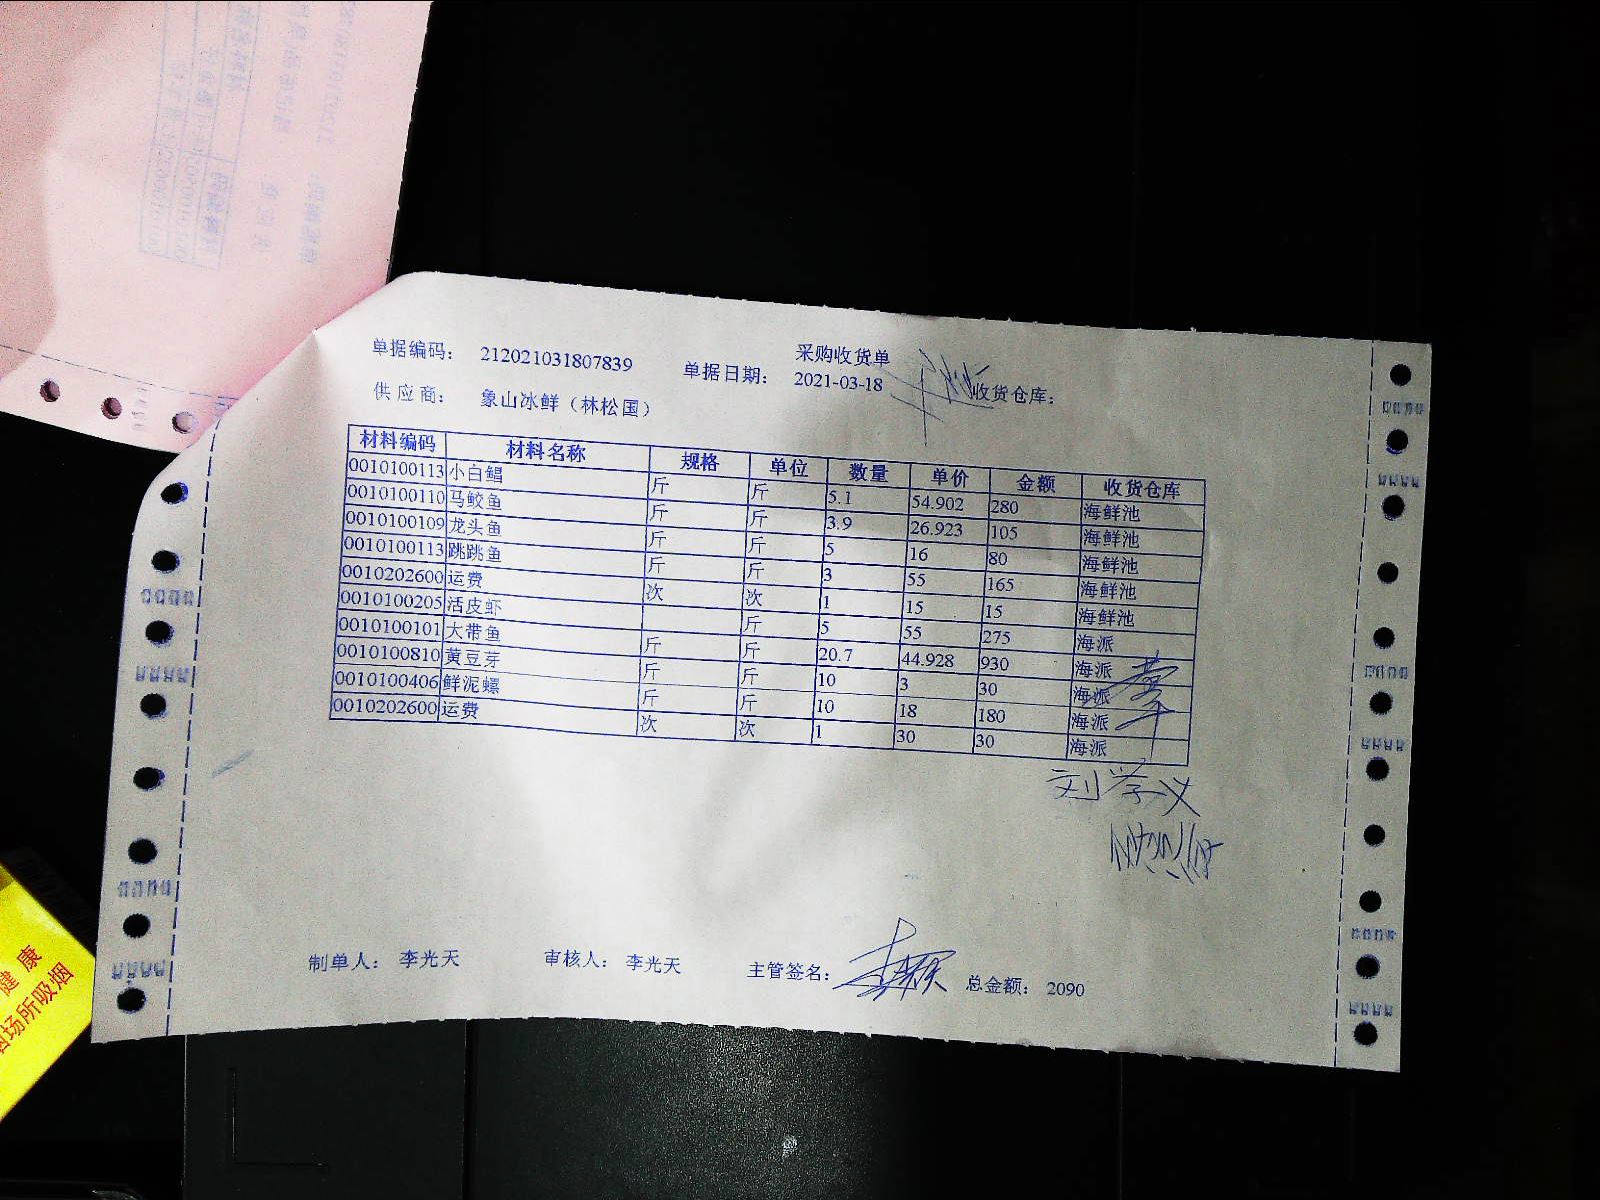 采购收货单
单据编码： 212021031807839 单据日期： 2021-03-18 收货仓库：
供应商： 象山冰鲜（林松国）
材料编码 材料名称 规格 单位 数量 单价 金额 收货仓库
0010100113 小白鲳 斤 斤 5.1 54.902 280 海鲜池
0010100110 马鲛鱼 斤 斤 3.9 26.923 105 海鲜池
0010100109 龙头鱼 斤 斤 5 16 80 海鲜池
0010100113 跳跳鱼 斤 斤 3 55 165 海鲜池
0010202600 运费 次 次 1 15 15 海鲜池
0010100205 活皮虾 斤 5 55 275 海派
0010100101 大带鱼 斤 斤 20.7 44.928 930 海派
0010100810 黄豆芽 斤 斤 10 3 30 海派
0010100406 鲜泥螺 斤 斤 10 18 180 海派
0010202600 运费 次 次 1 30 30 海派
刘学义
制单人： 李光天 审核人： 李光天 主管签名： 总金额： 2090
健康
场所吸烟